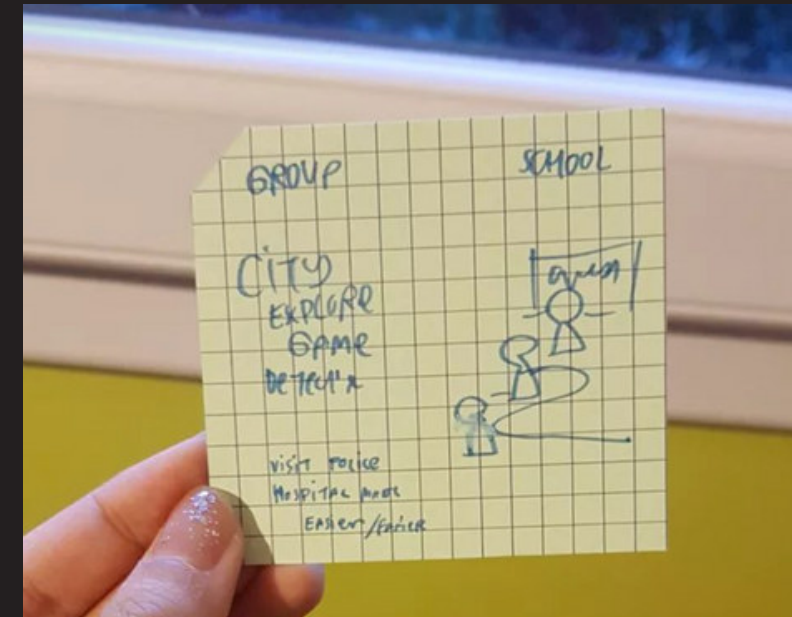 GROUP
SCHOOL
CITY
EXPLORE
GAME
VISIT POLICE
HOSPITAL MADE
EASIER/EASIER